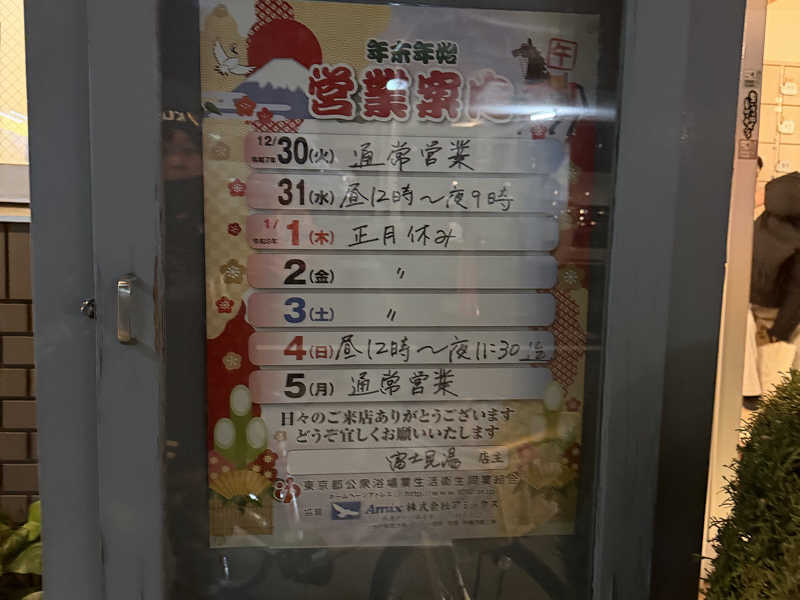 年末年始
午
営業案内
12/30(火) 通常営業
令和7年
31(水) 昼12時～夜9時
1/1(木) 正月休み
令和8年
2(金) 〃
3(土) 〃
4(日) 昼12時～夜11:30迄
5(月) 通常営業
日々のご来店ありがとうございます
どうぞ宜しくお願いいたします
富士見湯 店主
東京都公衆浴場業生活衛生同業組合
ホームページアドレス://http://www.1010.or.jp
協賛 Amix 株式会社アミックス